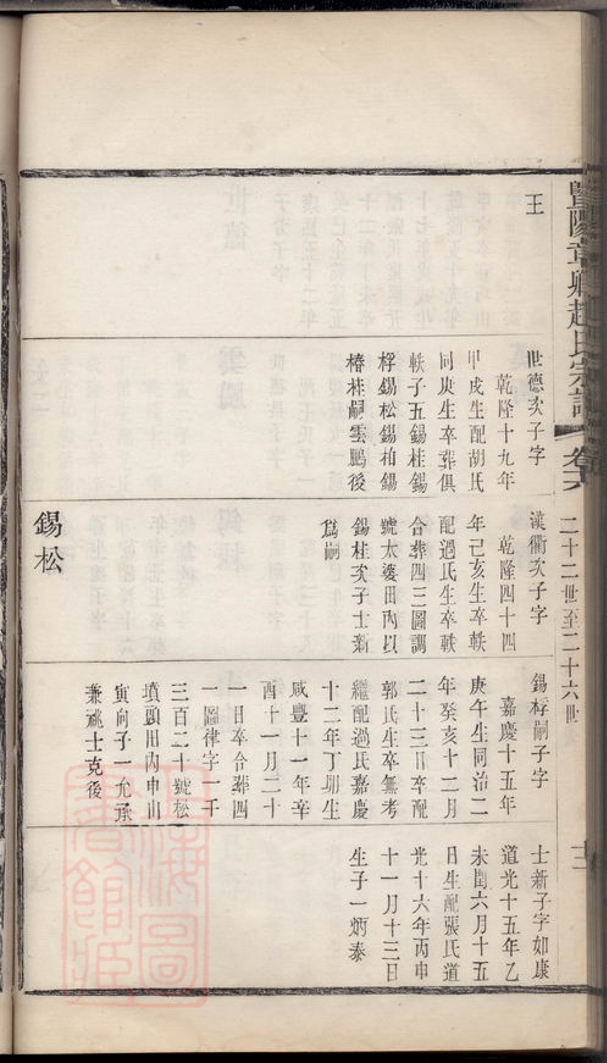 暨陽章卿趙氏宗譜
卷六
二十二世至二十六世
王
世德次子字
乾隆十九年
甲戌生配胡氏
同庚生卒葬俱
軼子五錫桂錫
桴錫松錫柏錫
椿桂嗣雲鵬後
漢衢次子字
乾隆四十四
年己亥生卒軼
配過氏生卒軼
合葬四三圖調
號太婆田內以
錫桂次子士新
為嗣
錫松
錫桴嗣子字
嘉慶十五年
庚午生同治二
年癸亥十二月
二十三日卒配
郭氏生卒無考
繼配過氏嘉慶
十二年丁卯生
咸豐十一年辛
酉十一月二十
一日卒合葬四
一圖律字一千
三百二十號松
墳頭田內申山
寅向子一允承
兼祧士克後
士新子字如康
道光十五年乙
未閏六月十五
日生配張氏道
光十六年丙申
十一月十三日
生子一炳泰